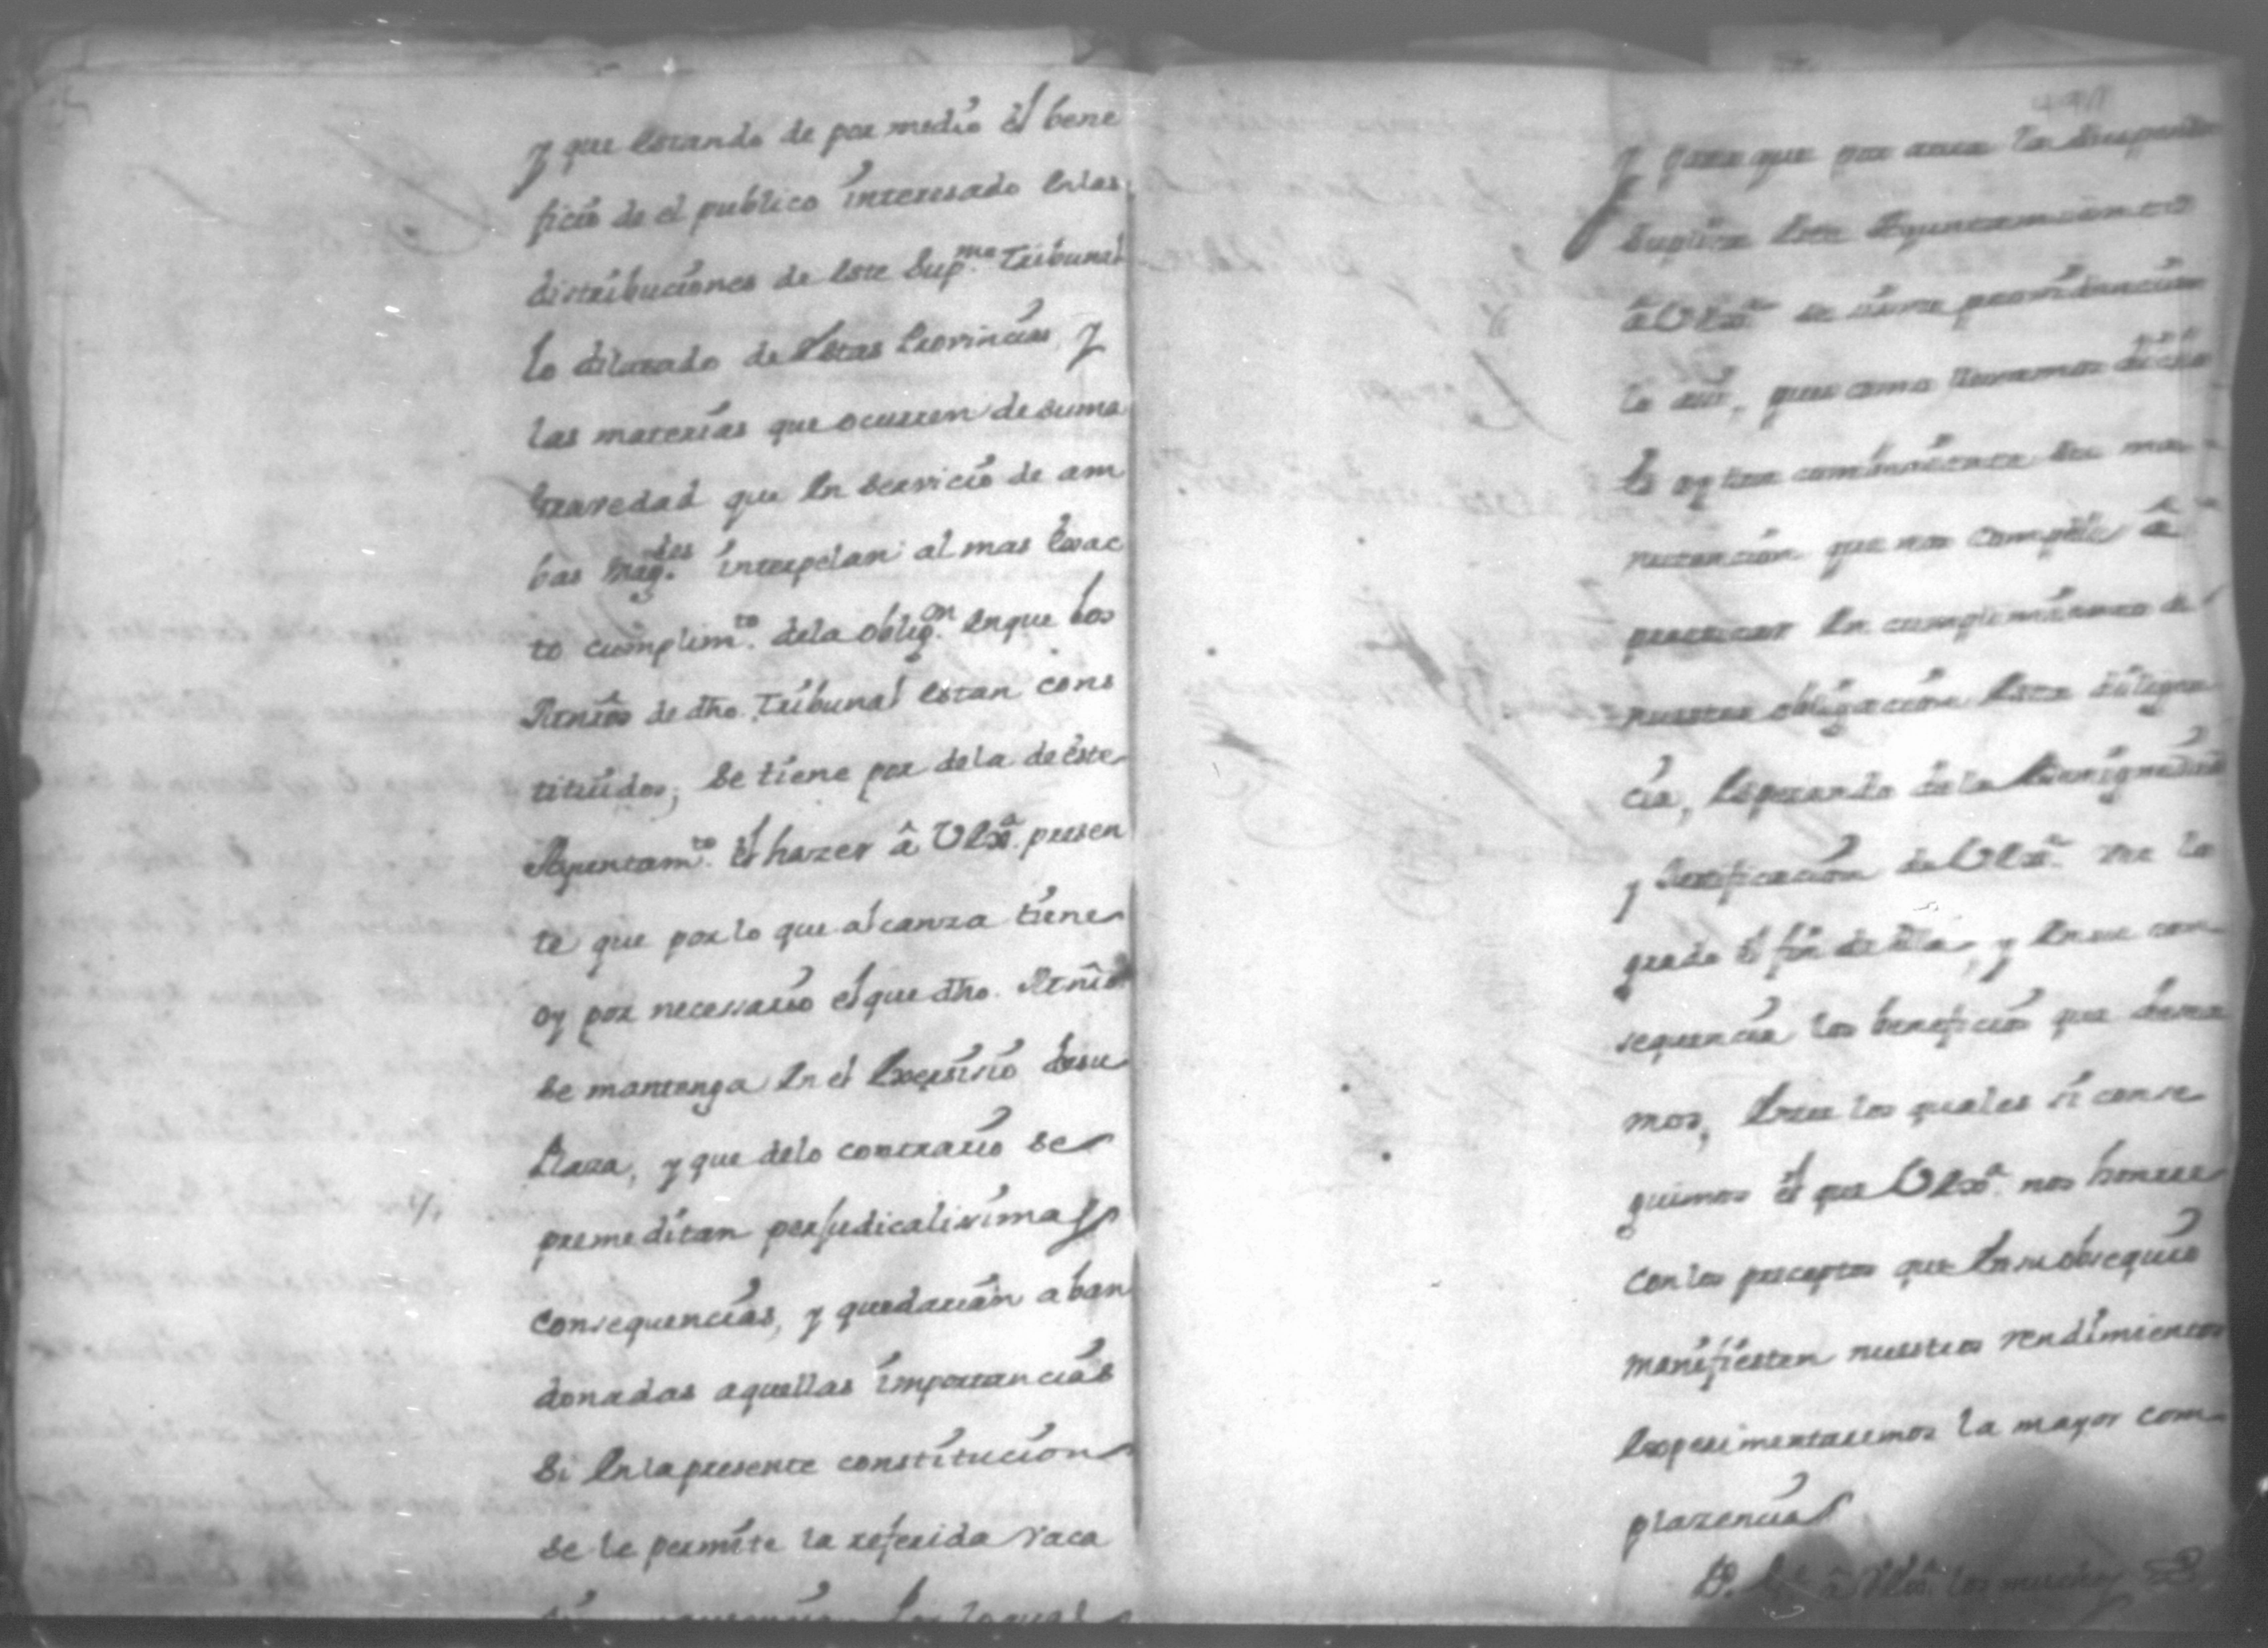 y que estando de por medio el bene
ficio de el publico interesado en las
distribuciones de este Sup.mo Tribunal
lo dilatado de estas Provincias, y
las materias que ocurren de suma
gravedad que en servicio de am
bas Mag.des interpelan al mas exac
to cumplim.to de la oblig.on en que los
de dho. Tribunal estan cons
tituidos, se tiene por de la de este
Ayuntam.to el hazer â VExâ. presen
te que por lo que alcanza tiene
oy por necessario el que dho.
se mantenga en el Exersisio de su
Plaza, y que de lo contrario se
premeditan perjudicalisimas
consequencias, y quedarian aban
donadas aquellas importancias
si en la presente constitucion
se le permite la referida vaca
y para que por aora la suspenda
suplica este Ayuntamiento
â VExâ. se sirva
lo asi, pues como llevamos dicho
nutencion que nos compele â
practicar en cumplimiento de
nuestra obligacion esta diligen
cia, esperando de la Benignidad
y Justificacion de VExâ. se la
grado el fin de ella, y en su con
sequencia los beneficios que desea
mos, entre los quales si conse
guimos el que VExâ. nos honrre
con los preceptos que en su obsequio
manifiesten nuestros rendimientos
experimentaremos la mayor com
plazencia
â VExâ. los muchos